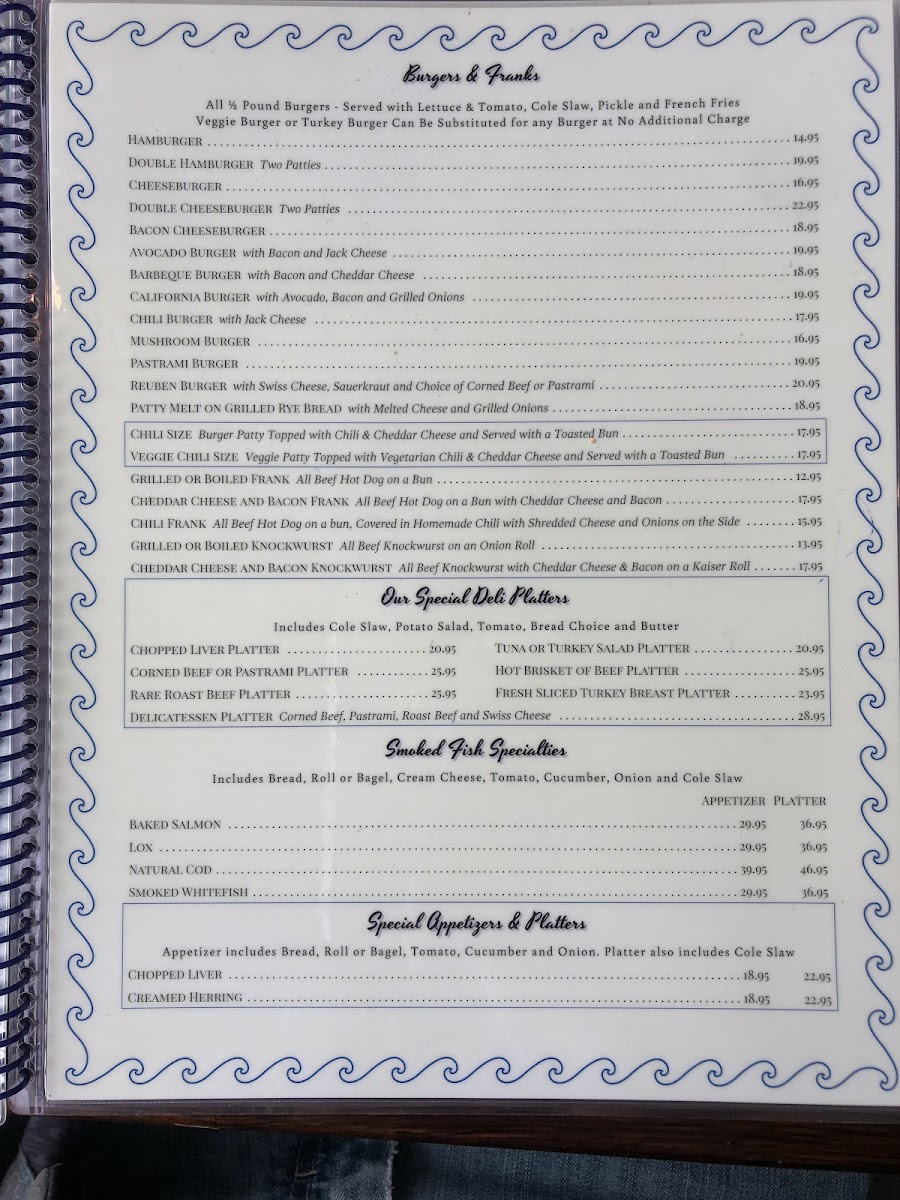 Burgers & Franks
All ½ Pound Burgers - Served with Lettuce & Tomato, Cole Slaw, Pickle and French Fries
Veggie Burger or Turkey Burger Can Be Substituted for any Burger at No Additional Charge
HAMBURGER 14.95
DOUBLE HAMBURGER Two Patties 19.95
CHEESEBURGER 16.95
DOUBLE CHEESEBURGER Two Patties 22.95
BACON CHEESEBURGER 18.95
AVOCADO BURGER with Bacon and Jack Cheese 19.95
BARBEQUE BURGER with Bacon and Cheddar Cheese 18.95
CALIFORNIA BURGER with Avocado, Bacon and Grilled Onions 19.95
CHILI BURGER with Jack Cheese 17.95
MUSHROOM BURGER 16.95
PASTRAMI BURGER 19.95
REUBEN BURGER with Swiss Cheese, Sauerkraut and Choice of Corned Beef or Pastrami 20.95
PATTY MELT ON GRILLED RYE BREAD with Melted Cheese and Grilled Onions 18.95
CHILI SIZE Burger Patty Topped with Chili & Cheddar Cheese and Served with a Toasted Bun 17.95
VEGGIE CHILI SIZE Veggie Patty Topped with Vegetarian Chili & Cheddar Cheese and Served with a Toasted Bun 17.95
GRILLED OR BOILED FRANK All Beef Hot Dog on a Bun 12.95
CHEDDAR CHEESE AND BACON FRANK All Beef Hot Dog on a Bun with Cheddar Cheese and Bacon 17.95
CHILI FRANK All Beef Hot Dog on a bun, Covered in Homemade Chili with Shredded Cheese and Onions on the Side 15.95
GRILLED OR BOILED KNOCKWURST All Beef Knockwurst on an Onion Roll 13.95
CHEDDAR CHEESE AND BACON KNOCKWURST All Beef Knockwurst with Cheddar Cheese & Bacon on a Kaiser Roll 17.95
Our Special Deli Platters
Includes Cole Slaw, Potato Salad, Tomato, Bread Choice and Butter
CHOPPED LIVER PLATTER 20.95 TUNA OR TURKEY SALAD PLATTER 20.95
CORNED BEEF OR PASTRAMI PLATTER 25.95 HOT BRISKET OF BEEF PLATTER 25.95
RARE ROAST BEEF PLATTER 25.95 FRESH SLICED TURKEY BREAST PLATTER 23.95
DELICATESSEN PLATTER Corned Beef, Pastrami, Roast Beef and Swiss Cheese 28.95
Smoked Fish Specialties
Includes Bread, Roll or Bagel, Cream Cheese, Tomato, Cucumber, Onion and Cole Slaw
APPETIZER PLATTER
BAKED SALMON 29.95 36.95
LOX 29.95 36.95
NATURAL COD 39.95 46.95
SMOKED WHITEFISH 29.95 36.95
Special Appetizers & Platters
Appetizer includes Bread, Roll or Bagel, Tomato, Cucumber and Onion. Platter also includes Cole Slaw
CHOPPED LIVER 18.95 22.95
CREAMED HERRING 18.95 22.95